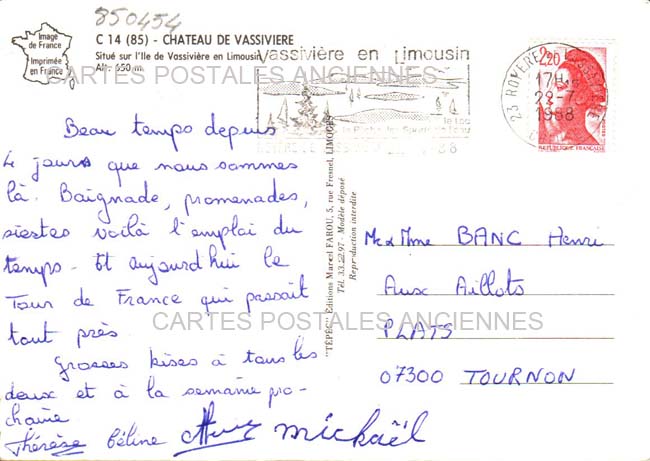 850454
Image
de France
Imprimée
en France
C 14 (85) - CHATEAU DE VASSIVIERE
Situé sur l'Ile de Vassivière en Limousin
Alt. 650 m
CARTES POSTALES ANCIENNES
Vassivière en Limousin
2,20
23 ROYERE
17H
29-7
1988
REPUBLIQUE FRANÇAISE
Beau temps depuis
4 jours que nous sommes
là. Baignade, promenades,
siestes voilà l'emploi du
temps - Et aujourd'hui le
Tour de France qui passait
tout près
Grosses bises à tous les
deux et à la semaine pro-
chaine
Thérèse Céline mickaël
"TÉPÉC" Éditions Marcel FAROU, 5, rue Fresnel, LIMOGES
Tél. 33.22.97 - Modèle déposé
Reproduction interdite
M et Mme BANC Henri
Aux Aillots
PLATS
07300 TOURNON
CARTES POSTALES ANCIENNES